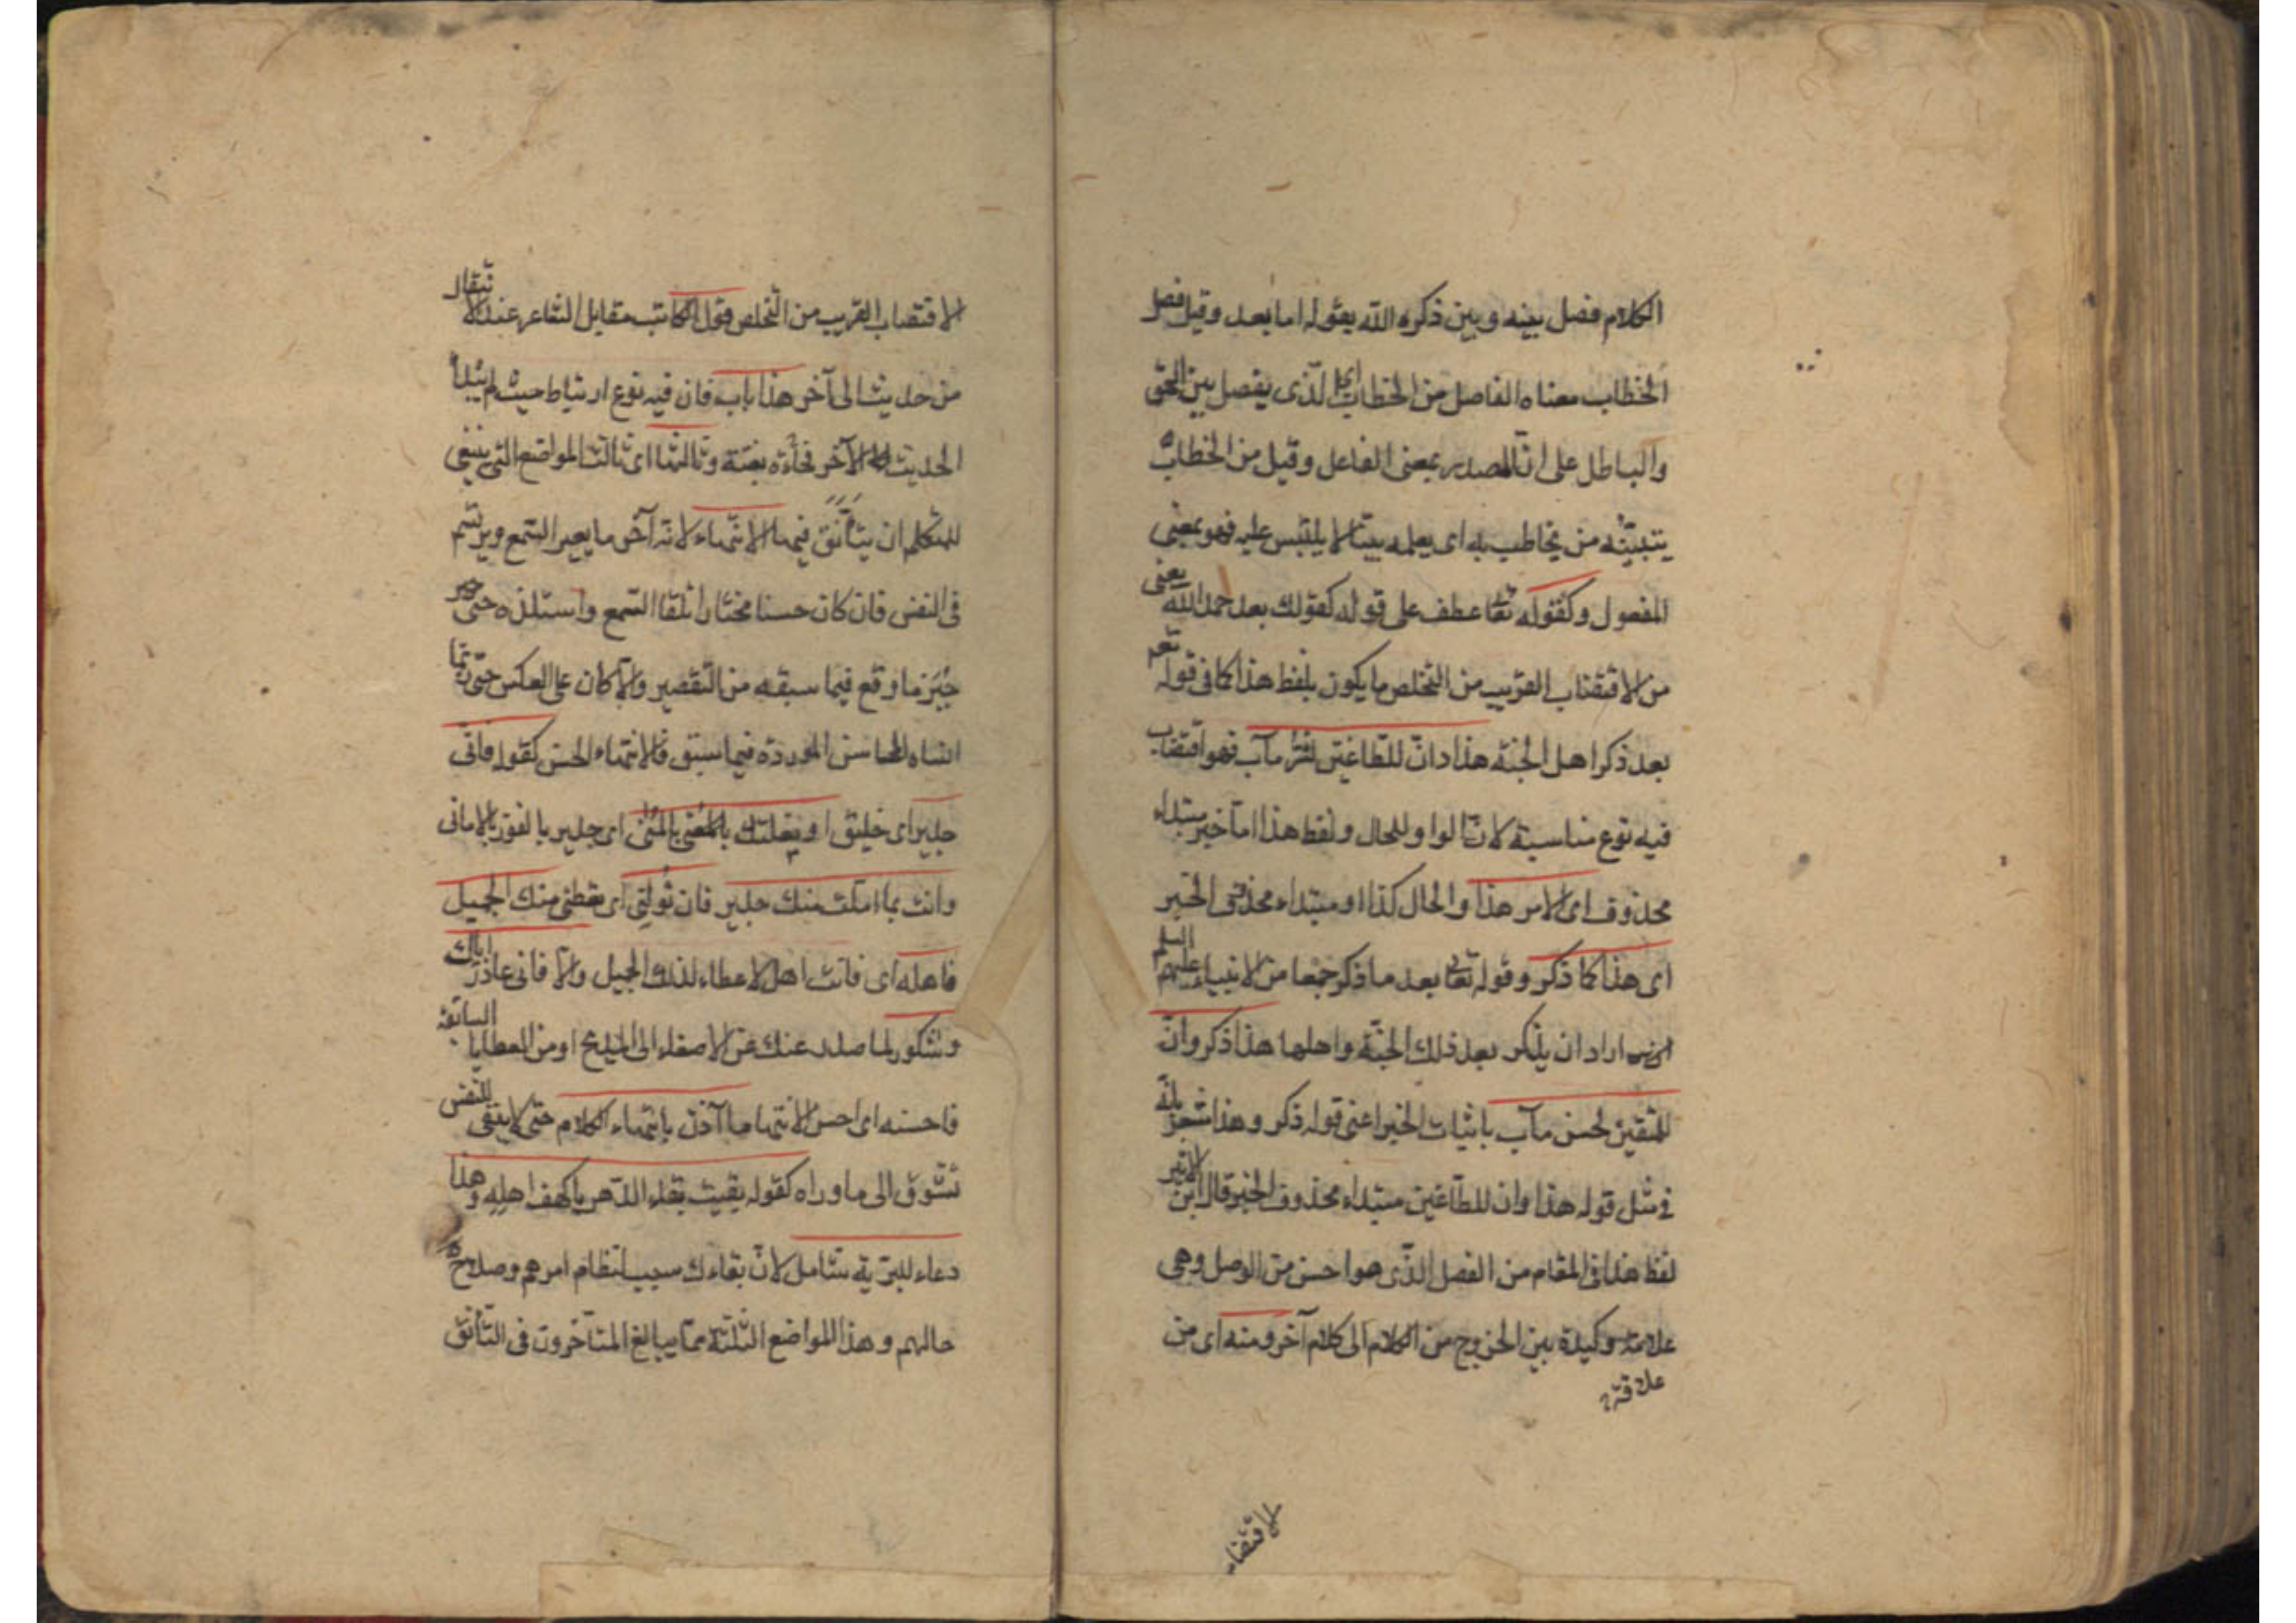 الكلام فصل بينه وبين ذكره الله بقوله اما بعد وقيل فصل
الخطاب معناه الفاصل من الخطاب اى الذى يفصل بين الحق
والباطل على ان المصدر بمعنى الفاعل وقيل من الخطاب
يتبينه من يخاطب به اى يعلمه بينا لا يلتبس عليه فهو بمعنى
المفعول وكقوله تعا عطف على قوله كقولك بعد حمد الله يعنى
من الاقتضاب القريب من التخلص ما يكون بلفظ هذا كما فى قوله تعم
بعد ذكر اهل الجنة هذا وان للطاغين لشر مآب فهو اقتضاب
فيه نوع مناسبة لان الواو للحال ولفظ هذا اما خبر مبتداء
محذوف اى الامر هذا والحال كذا او مبتداء محذوف الخبر
اى هذا كما ذكر وقوله تعا بعد ما ذكر جمعا من الانبياء عليهم السلم
اراد ان يذكر بعد ذلك الجنة واهلها هذا ذكر وان
للمتقين لحسن مآب باثبات الخبر اعنى قوله ذكر وهذا مشعر بانه
فى مثل قوله هذا وان للطاغين مبتداء محذوف الخبر قال ابن الاثير
لفظ هذا فى المقام من الفصل الذى هو احسن من الوصل وهى
وكيدة بين الخروج من الكلام الى كلام آخر ومنه اى من
علاقة
الاقتضا
الاقتضاب القريب من التخلص قول الكاتب مقابل الشاعر عند الانتقال
من حديث الى آخر هذا باب فان فيه نوع ارتباط حيث لم يبتدأ
الحديث الآخر فجأة بغتة وثالثها اى ثالث المواضع التى ينبغى
للمتكلم ان يتأنق فيها الانتهاء لانه آخر ما يعيه السمع ويرتسم
فى النفس فان كان حسنا مختارا تلقا السمع واستلذه حتى
جبر ما وقع فيما سبقه من التقصير والا كان على العكس حتى ربما
انساه المحاسن الموردة فيما سبق فالانتهاء الحسن كقوله وانى
جدير اى خليق اذ بلغتك بالمنى اى جدير بالفوز بالامانى
وانت بما املت منك جدير فان تولنى اى تعطنى منك الجميل
فاهله اى فانت اهل لاعطاء لذلك الجميل والا فانى عاذر اياك
وشكور لما صدر عنك من الاصغاء الى المديح او من العطايا السابقة
فاحسنه اى احسن الانتهاء ما آذن بانتهاء الكلام حتى لا يبقى للنفس
تشوق الى ما وراه كقوله بقيت بقاء الدهر يا كهف اهله وهذا
دعاء للبرية شامل لان بقاءك سبب لنظام امرهم وصلاح
حالهم وهذا المواضع الثلثة مما يبالغ المتأخرون فى التأنق